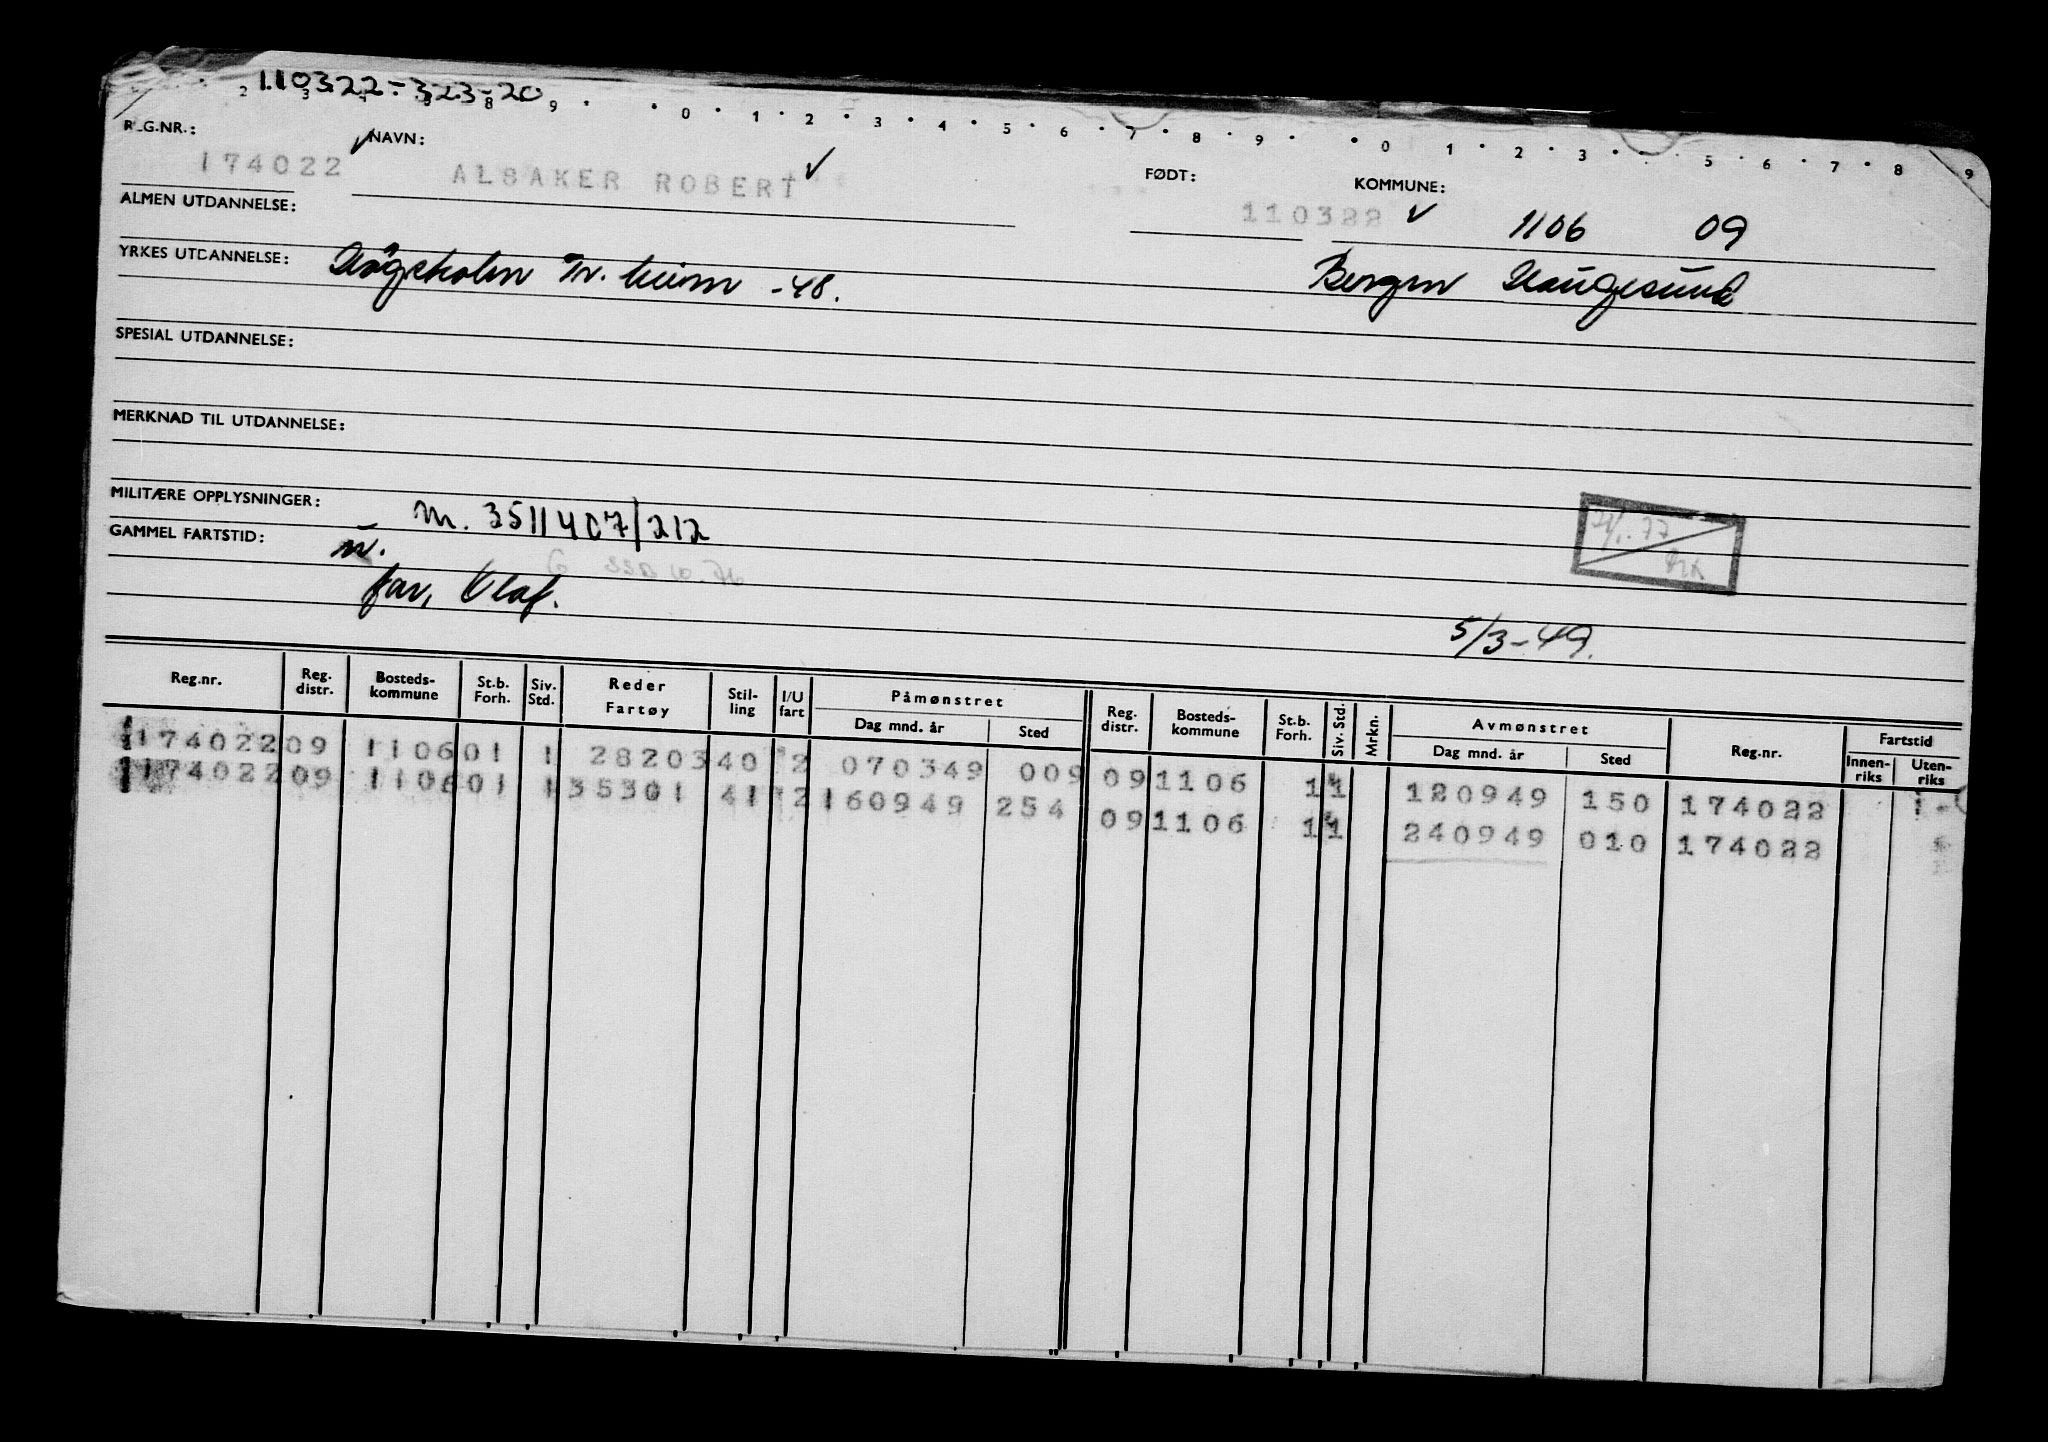 110322-323-20
2 3 4 8 9 0 1 2 3 4 5 6 7 8 9 0 1 2 3 5 6 7 8 9
REG.NR.: NAVN: FØDT: KOMMUNE:
174022 ALSAKER ROBERT 110322 1106 09
ALMEN UTDANNELSE:
YRKES UTDANNELSE: -48. Bergen Haugesund
SPESIAL UTDANNELSE:
MERKNAD TIL UTDANNELSE:
MILITÆRE OPPLYSNINGER: m. 3511407/212
GAMMEL FARTSTID:
far, Olaf.
5/3-49.
Reg.nr. Reg. distr. Bosteds-kommune St.b. Forh. Siv. Std. Reder Fartøy Stil-ling I/U fart Påmønstret Dag mnd. år Sted Reg. distr. Bosteds-kommune St.b. Forh. Siv. Std. Mrkn. Avmønstret Dag mnd. år Sted Reg.nr. Fartstid Innen-riks Uten-riks
174022 09 1106 01 1 28203 40 2 070349 009 09 1106 1 1 120949 150 174022
174022 09 1106 01 1 35301 41 2 160949 254 09 1106 1 1 240949 010 174022